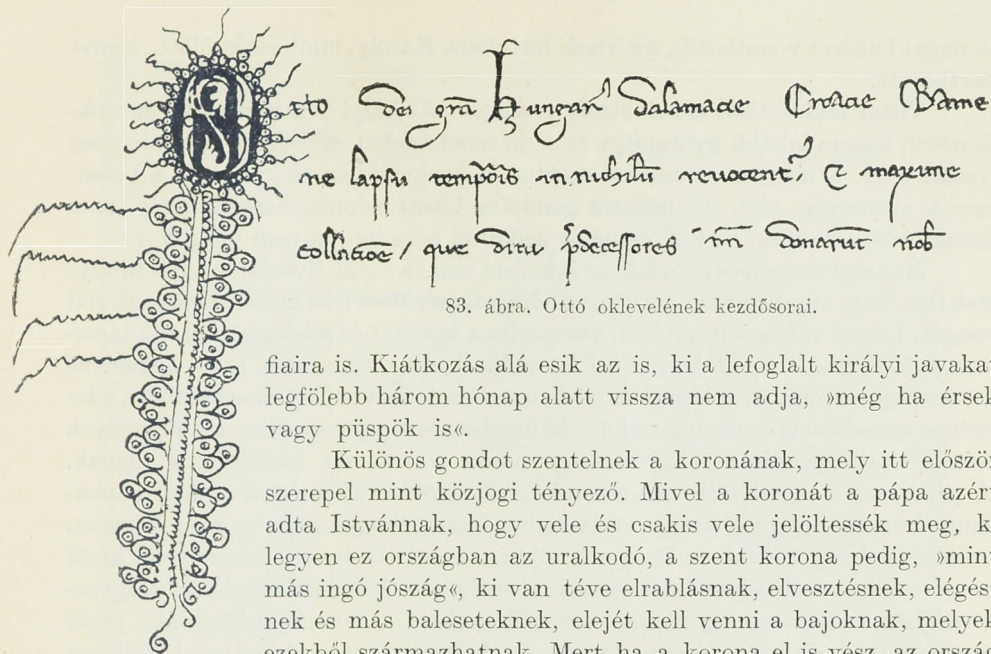 Otto dei gr̃a Hungar̃ Dalamacie Croacie Rame
ne lapsu temp̃ois in nichilũ revocent᷑ ⁊ maxime
collacõe / que diui p̃decessores nr̃i donarũt nob̃
83. ábra. Ottó oklevelének kezdősorai.
fiaira is. Kiátkozás alá esik az is, ki a lefoglalt királyi javaka
legfölebb három hónap alatt vissza nem adja, »még ha érsek
vagy püspök is«.
Különös gondot szentelnek a koronának, mely itt először
szerepel mint közjogi tényező. Mivel a koronát a pápa azér
adta Istvánnak, hogy vele és csakis vele jelöltessék meg, k
legyen ez országban az uralkodó, a szent korona pedig, »min
más ingó jószág«, ki van téve elrablásnak, elvesztésnek, elégés
nek és más baleseteknek, elejét kell venni a bajoknak, melyek
ezekből származhatnak. Mert ha a korona el is vész, az ország